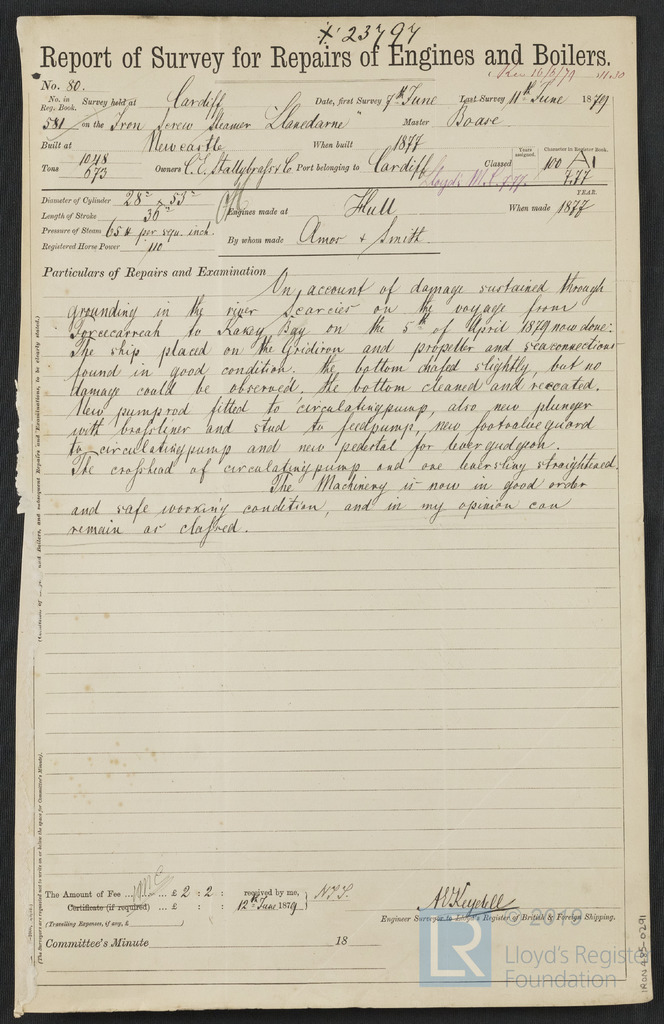 × 23797
Report of Survey for Repairs of Engines and Boilers.
Rec 16/6/79
No. 80.
No. in Reg. Book. Survey held at Cardiff Date, first Survey 7th June Last Survey 11th June 1879
581 on the Iron Screw Steamer "Llanedarne" Master Boase
Built at Newcastle When built 1877
Tons 1048 673 Owners C.E. Stallybrass & Co Port belonging to Cardiff Classed Years assigned. 100 Character in Register Book. A1
Lloyd's M.C. 7.77 7.77
Diameter of Cylinder 28" × 53" YEAR.
Length of Stroke 36" Engines made at Hull When made 1877
Pressure of Steam 65 lb per squ. inch.
Registered Horse Power 110 By whom made Amos & Smith
Particulars of Repairs and Examination On account of damage sustained through
grounding in the river Scarcies on the voyage from
to Kakey Bay on the 5th of April 1879 now done:
The ship placed on the Gridiron and propeller and seaconnections
found in good condition. the bottom chafed slightly, but no
damage could be observed. the bottom cleaned and recoated.
New pumprod fitted to circulatingpump, also new plunger
with brassliner and stud to feedpump, new footvalveguard
to circulatingpump and new pedestal for levergudgeon.
The crosshead of circulatingpump and one leversling straightened.
The Machinery is now in good order
and safe working condition, and in my opinion can
remain as classed.
The Amount of Fee ... £ 2 : 2 : received by me,
Certificate (if required) ... £ : : 12th June 1879
(Travelling Expenses, if any, £ )
Engineer Surveyor to Lloyd's Register of British & Foreign Shipping.
Committee's Minute 18
© 2019
LR Lloyd's Register
Foundation
IRON485-0291